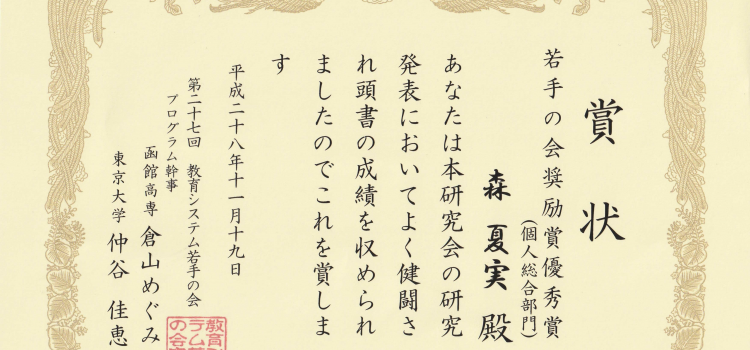 賞状
若手の会奨励賞優秀賞
(個人総合部門)
森 夏実 殿
あなたは本研究会の研究
発表においてよく健闘さ
れ頭書の成績を収められ
ましたのでこれを賞しま
す
平成二十八年十一月十九日
第二十七回 教育システム若手の会
プログラム幹事
函館高専 倉山めぐみ
東京大学 仲谷 佳恵